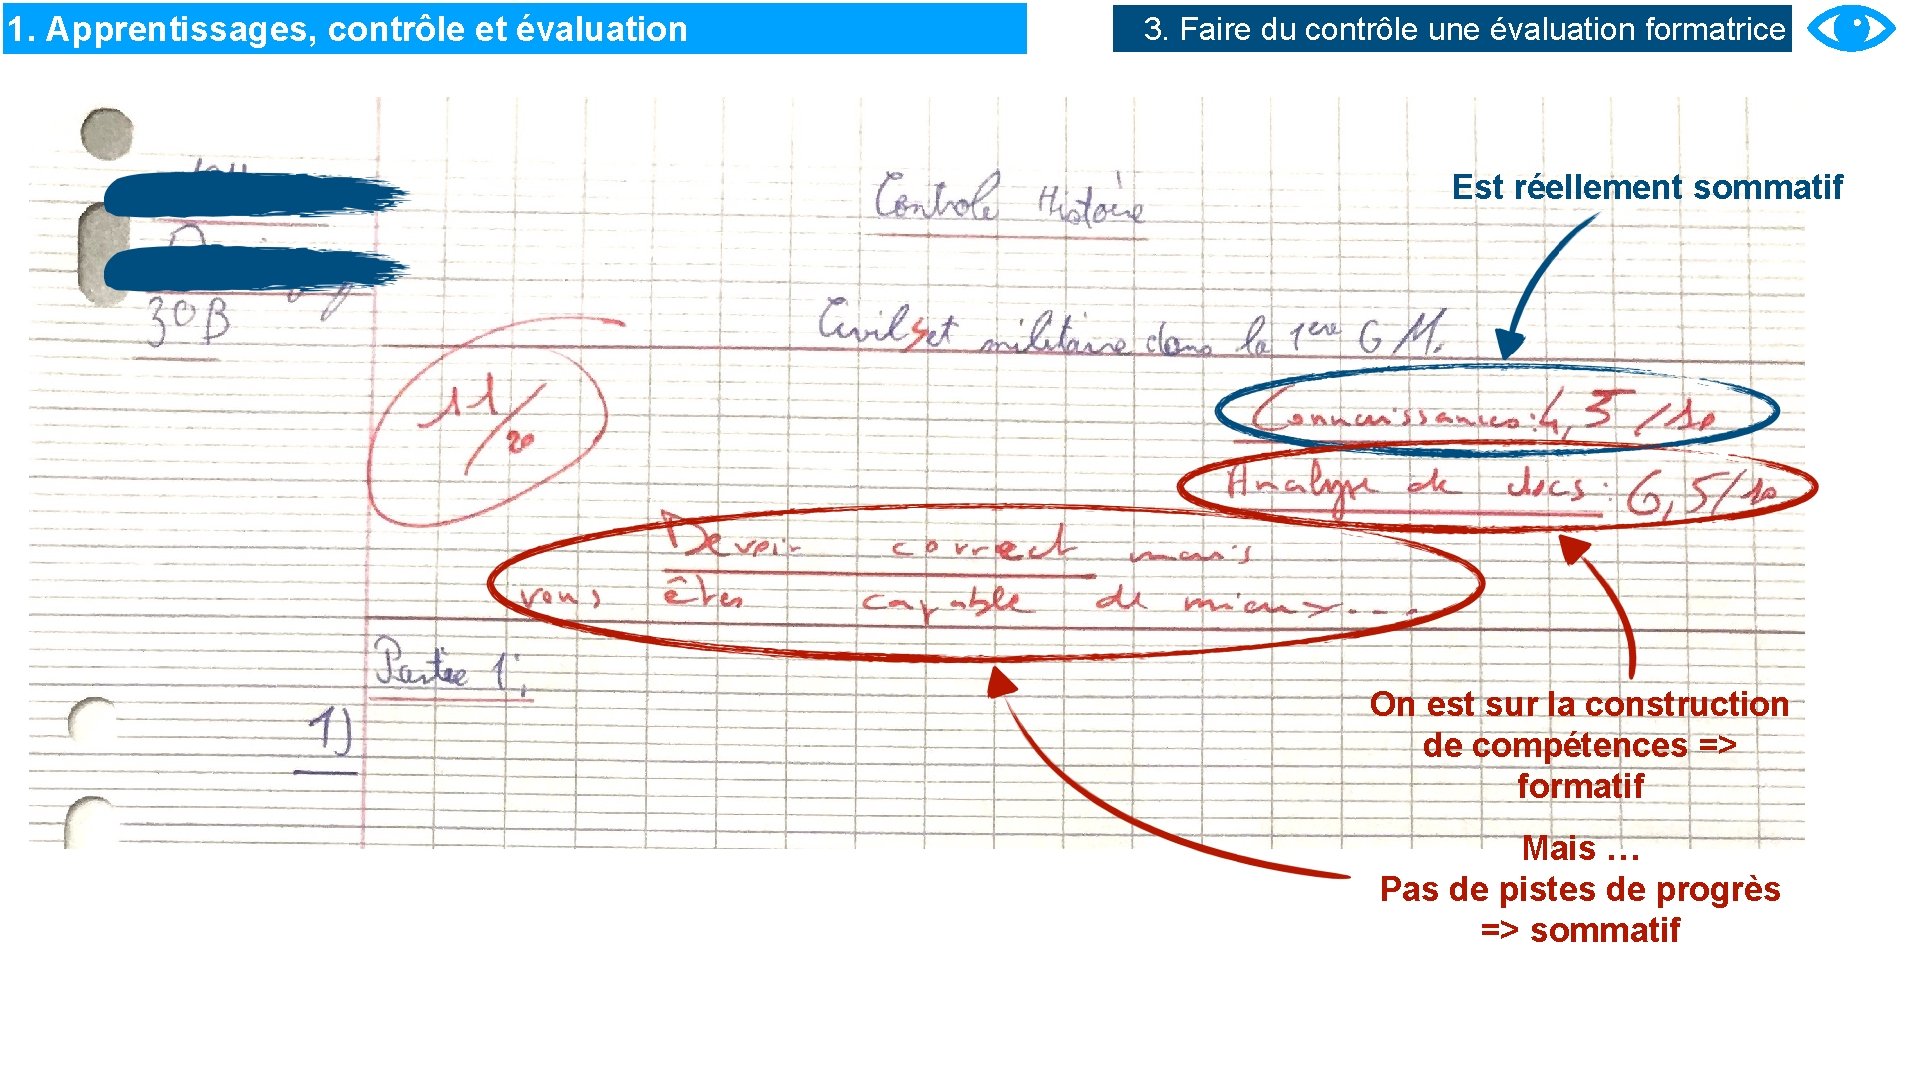 1. Apprentissages, contrôle et évaluation
3. Faire du contrôle une évaluation formatrice
Controle Histoire
Est réellement sommatif
30B
Civils et militaire dans la 1ere GM.
11/20
Connaissances: 4,5/10
Analyse de docs: 6,5/10
Devoir correct mais
vous êtes capable de mieux....
Partie 1:
1)
On est sur la construction
de compétences =>
formatif
Mais …
Pas de pistes de progrès
=> sommatif